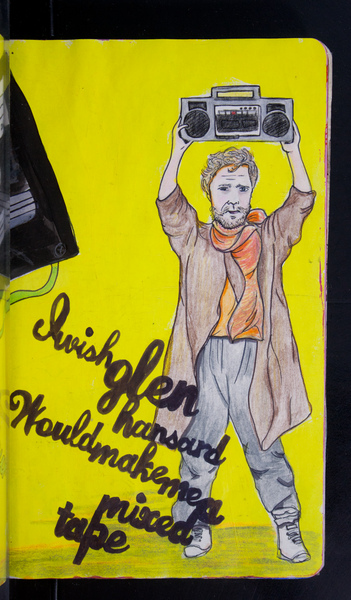 I wish
glen
hansard
Would make me a
mixed
tape